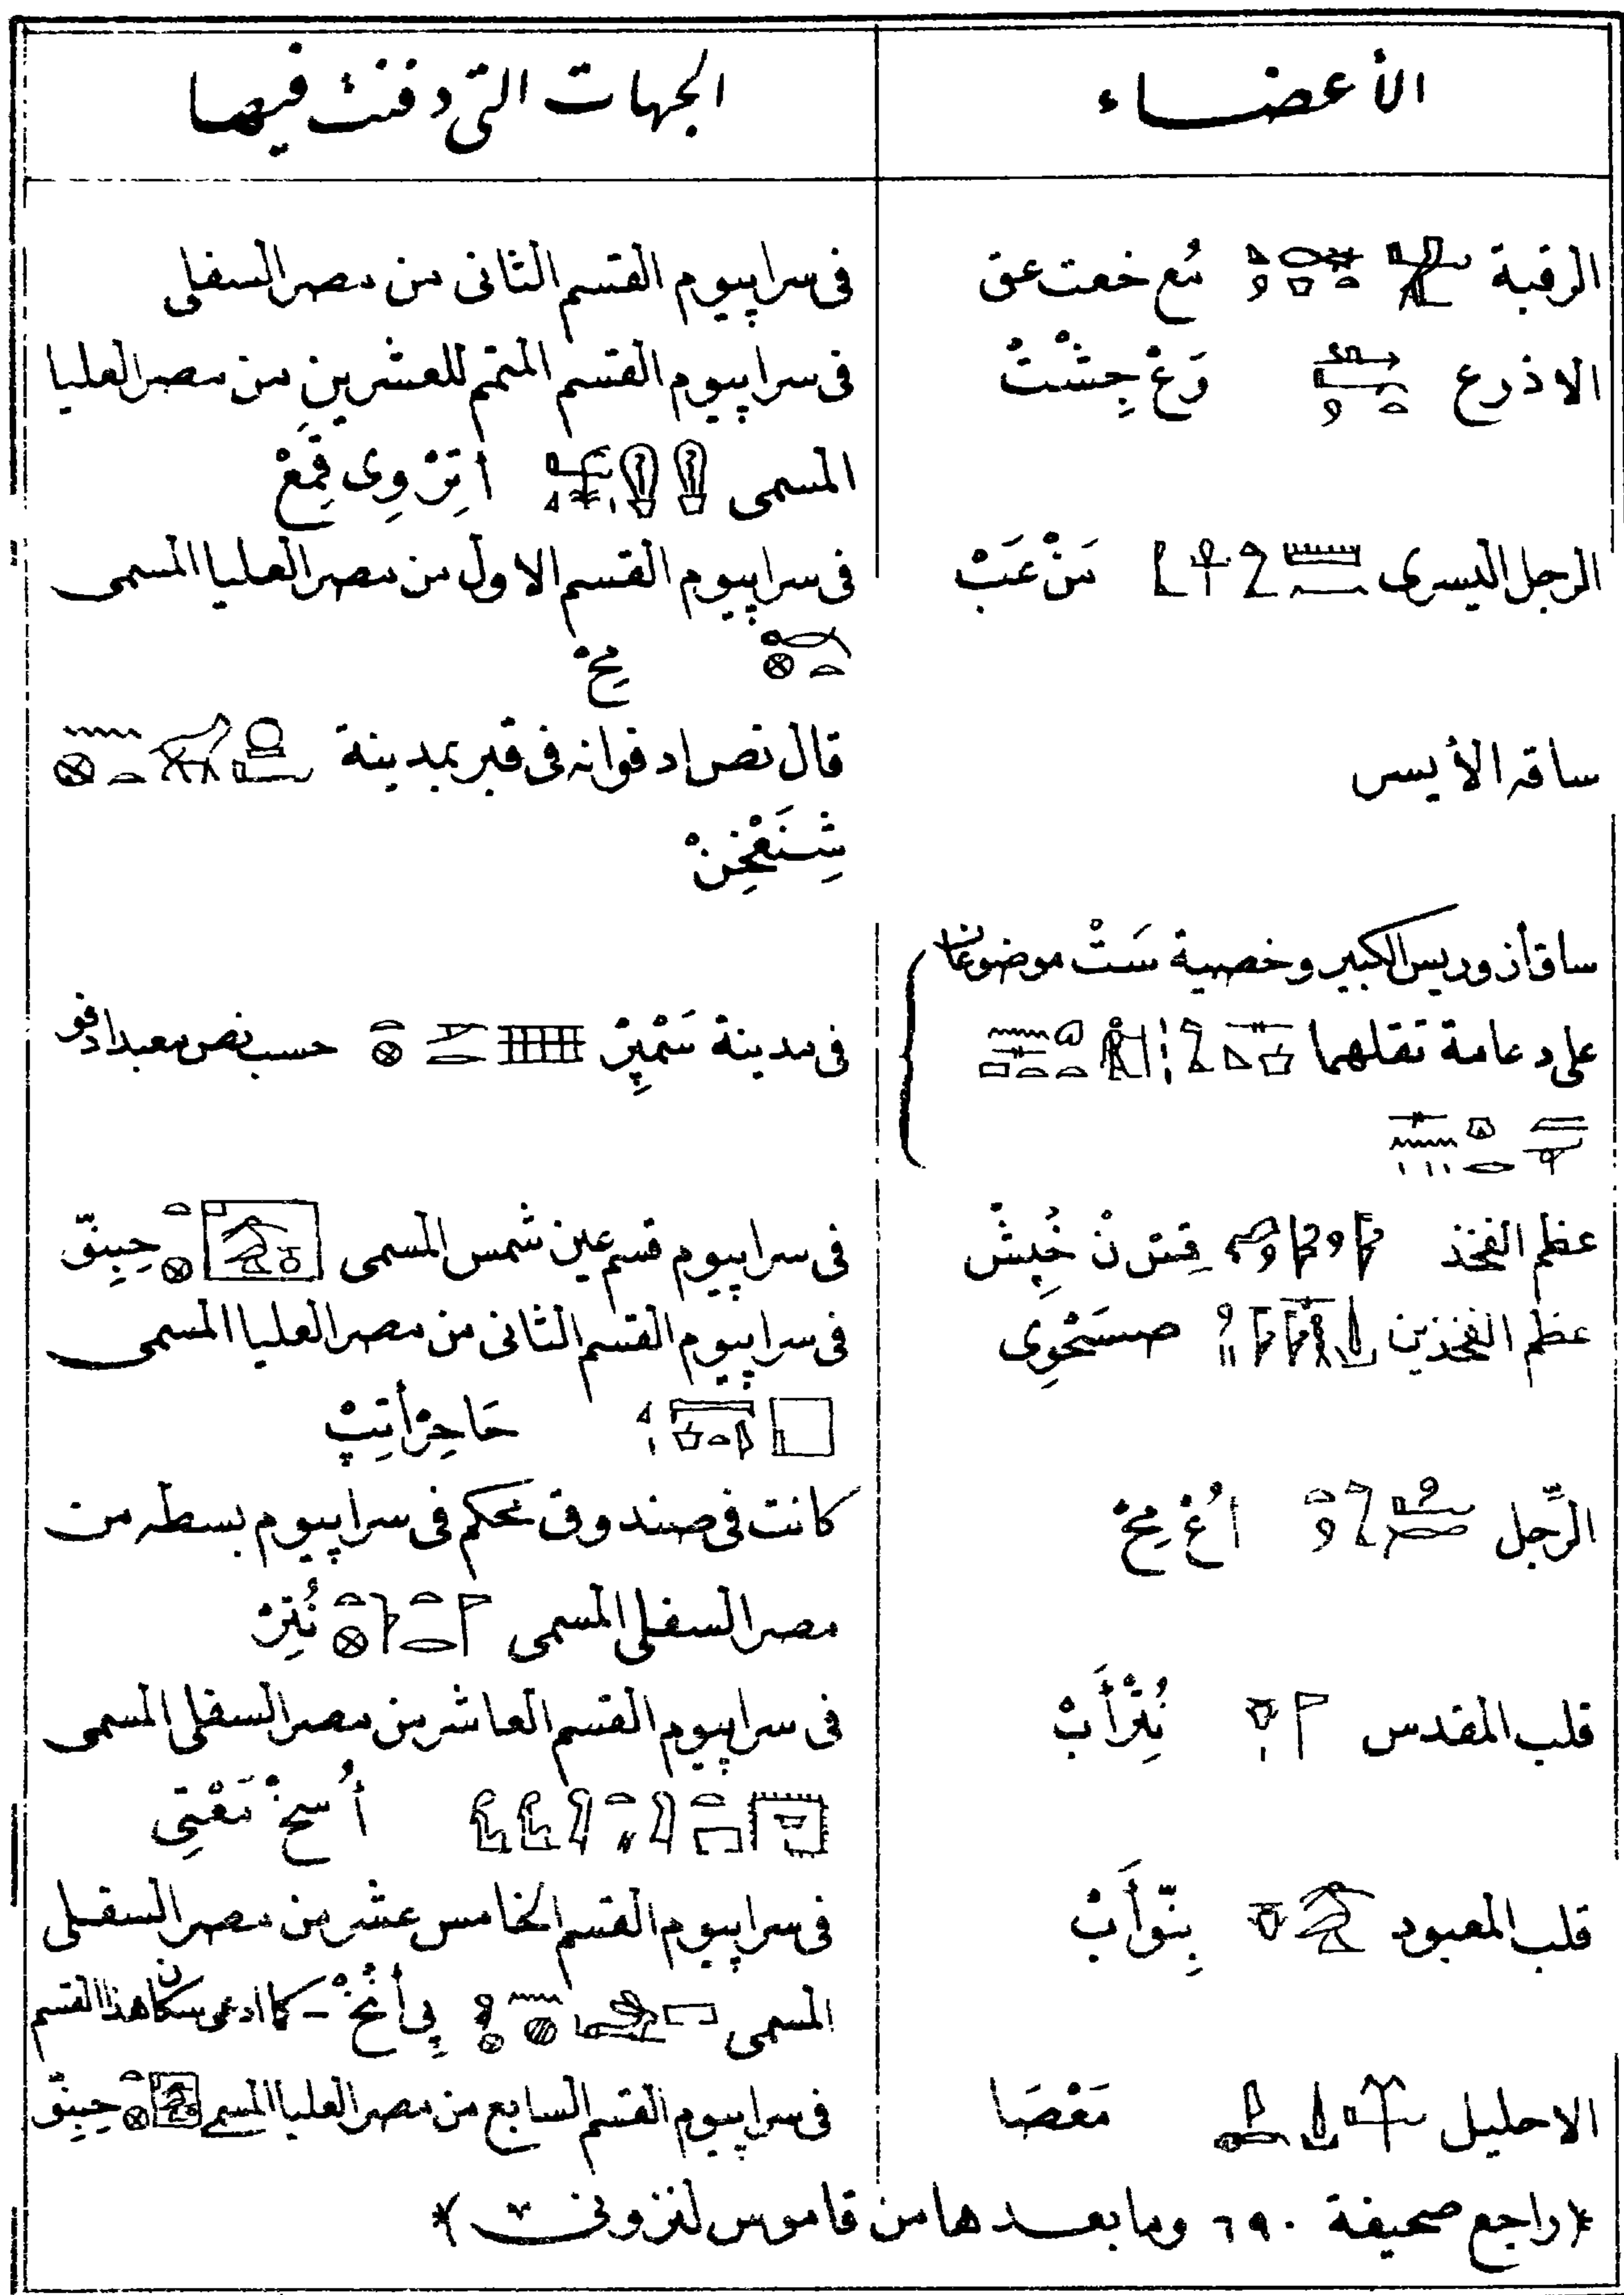 الأعضاء الجهات التى دفنت فيها
الرقبة مُع خعت عق فى سراپيوم القسم الثانى من مصر السفلى
الاذرع وَعْ جِشْتْ فى سراپيوم القسم المتمم للعشرين من مصر العليا
المسمى اتِرْ وِى قِمَعْ
الرجل اليسرى مَنْ عَبْ فى سراپيوم القسم الاول من مصر العليا المسمى
مِحْ
ساقه الأيسر قال نص ادفوانه فى قبر بمدينة
شِنَعْخِنْ
ساقا أزوريس الكبير وخصية سَتْ موضوعان
على دعامة تقلهما فى مدينة سَمْپِرْ حسب نص معبد ادفو
عظم الفخذ قِسْ نْ خُپِشْ فى سراپيوم قسم عين شمس المسمى حِبِنّق
عظم الفخذين صستحْوِى فى سراپيوم القسم الثانى من مصر العليا المسمى
حَاحِرْأتِپْ
الرِّجل اُعْ مِحْ كانت فى صندوق محكم فى سراپيوم بسطه من
مصر السفلى المسمى نُتِرْ
قلب المقدس نُتِرْأَبْ فى سراپيوم القسم العاشر من مصر السفلى المسمى
أُسخْ مَعْتِى
قلب المعبود بِنّوأَبْ فى سراپيوم القسم الخامس عشر من مصر السفلى
المسمى پِى أنْخْ - كما ادعى سكان هذا القسم
الاحليل مَعْصَا فى سراپيوم القسم السابع من مصر العليا المسمى حِبِنّق
(راجع صحيفة ٦٩٠ وما بعدها من قاموس لنزونى)